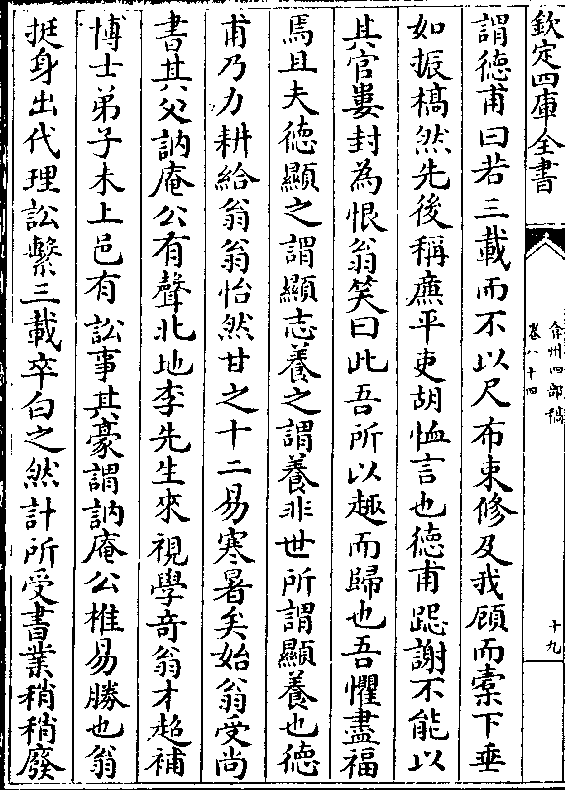 欽定四庫全書
弇州四部稿
卷八十四
十九
謂徳甫曰若三載而不以尺布束修及我顧而橐下垂
如振槁然先後稱廉平吏胡恤言也徳甫跽謝不能以
其官婁封為恨翁笑曰此吾所以趣而歸也吾懼盡福
焉且夫徳顯之謂顯志養之謂養非世所謂顯養也徳
甫乃力耕給翁翁怡然甘之十二易寒暑矣始翁受尚
書其父訥庵公有聲北地李先生來視學奇翁才超補
博士弟子未上邑有訟事其豪謂訥庵公椎易勝也翁
挺身出代理訟繫三載卒白之然計所受書業稍稍廢